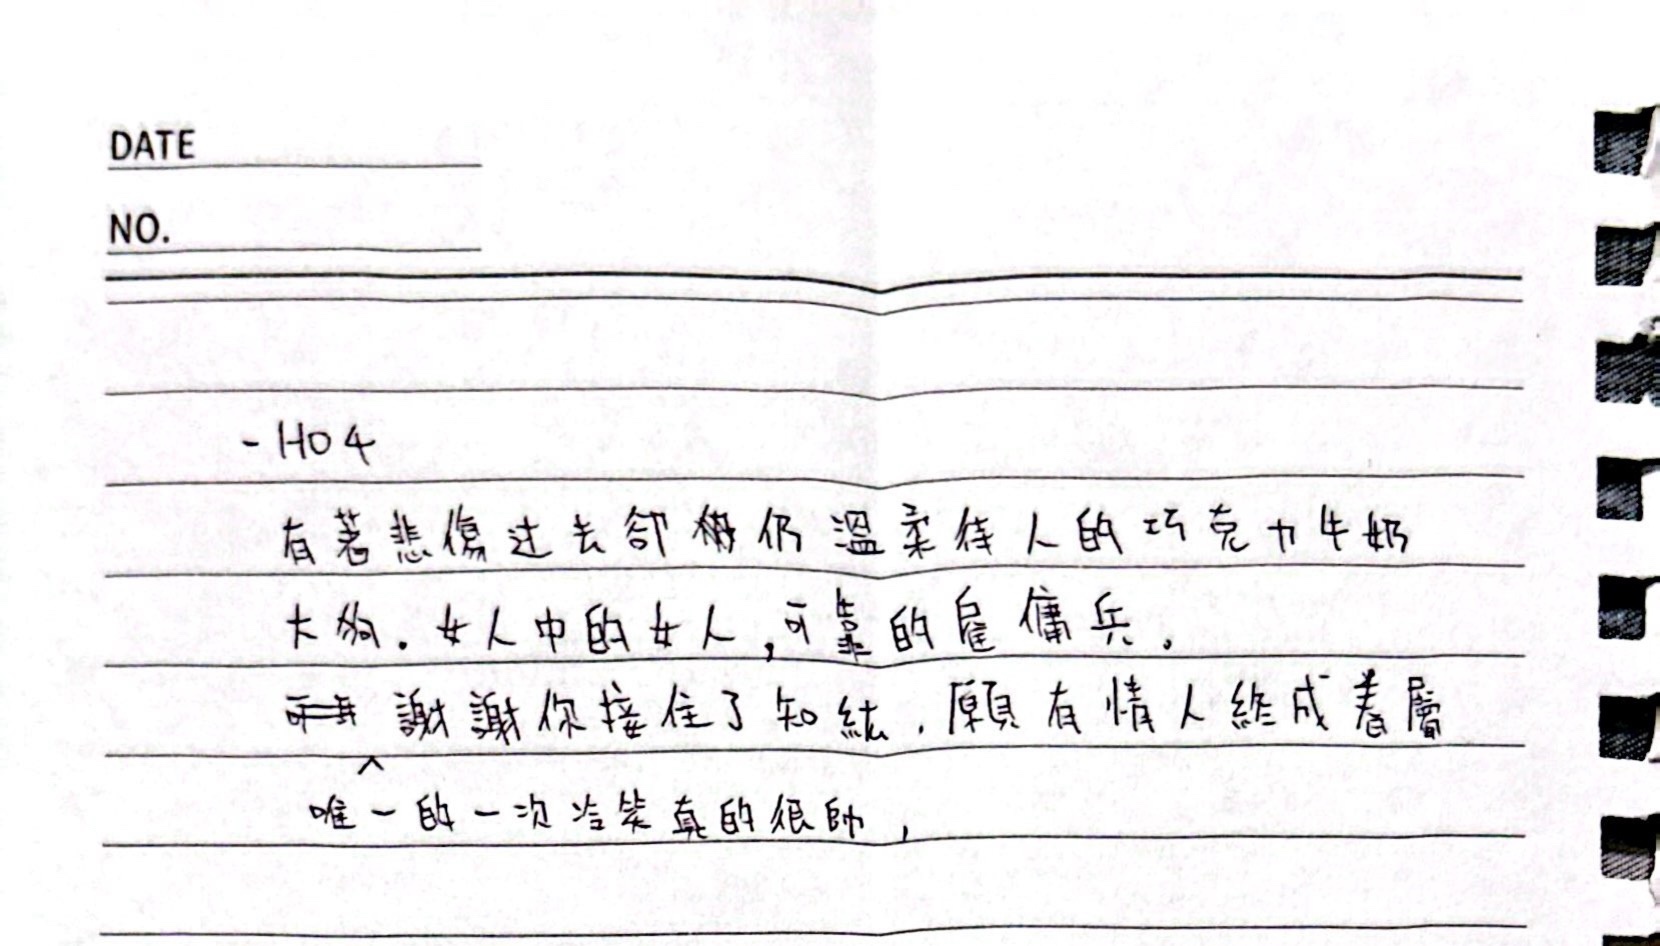 DATE
NO.
- HO4
有著悲傷过去卻仍溫柔待人的巧克力牛奶
大狗. 女人中的女人,可靠的雇傭兵.
謝謝你接住了知紘.願有情人終成眷屬
^
唯一的一次冷笑真的很帥,